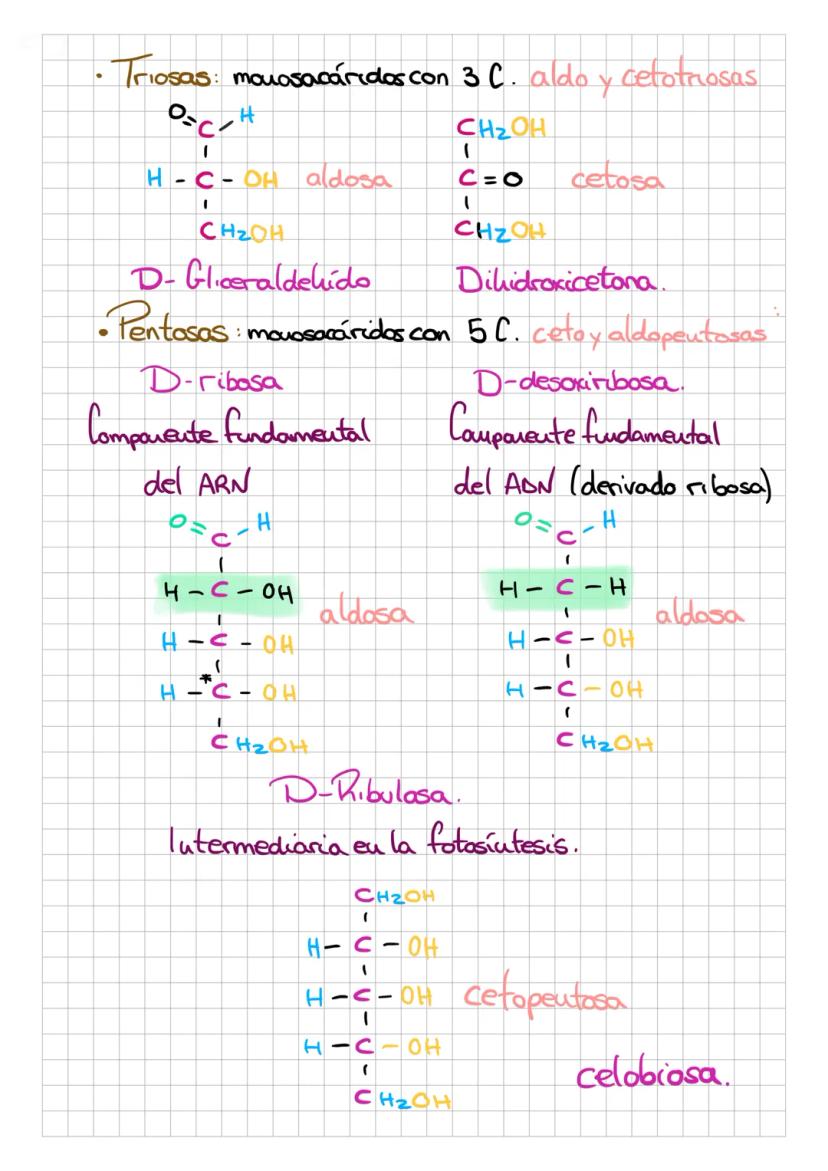 · Triosas: monosacáridos con 3 C. aldo y cetotriosas
O= C - H
CH2OH
H - C - OH aldosa
C = O cetosa
CH2OH
CH2OH
D- Gliceraldehído
Dihidroxicetona.
· Pentosas: monosacáridos con 5 C. ceto y aldopentosas:
D-ribosa
Componente fundamental
del ARN
O= C - H
H - C - OH
aldosa
H - C - OH
H - *C - OH
CH2OH
D-desoxirribosa.
Componente fundamental
del ADN (derivado ribosa)
O= C - H
H - C - H
aldosa
H - C - OH
H - C - OH
CH2OH
D-Ribulosa.
Intermediaria en la fotosíntesis.
CH2OH
H - C - OH
H - C - OH cetopentosa
H - C - OH
CH2OH
celobiosa.